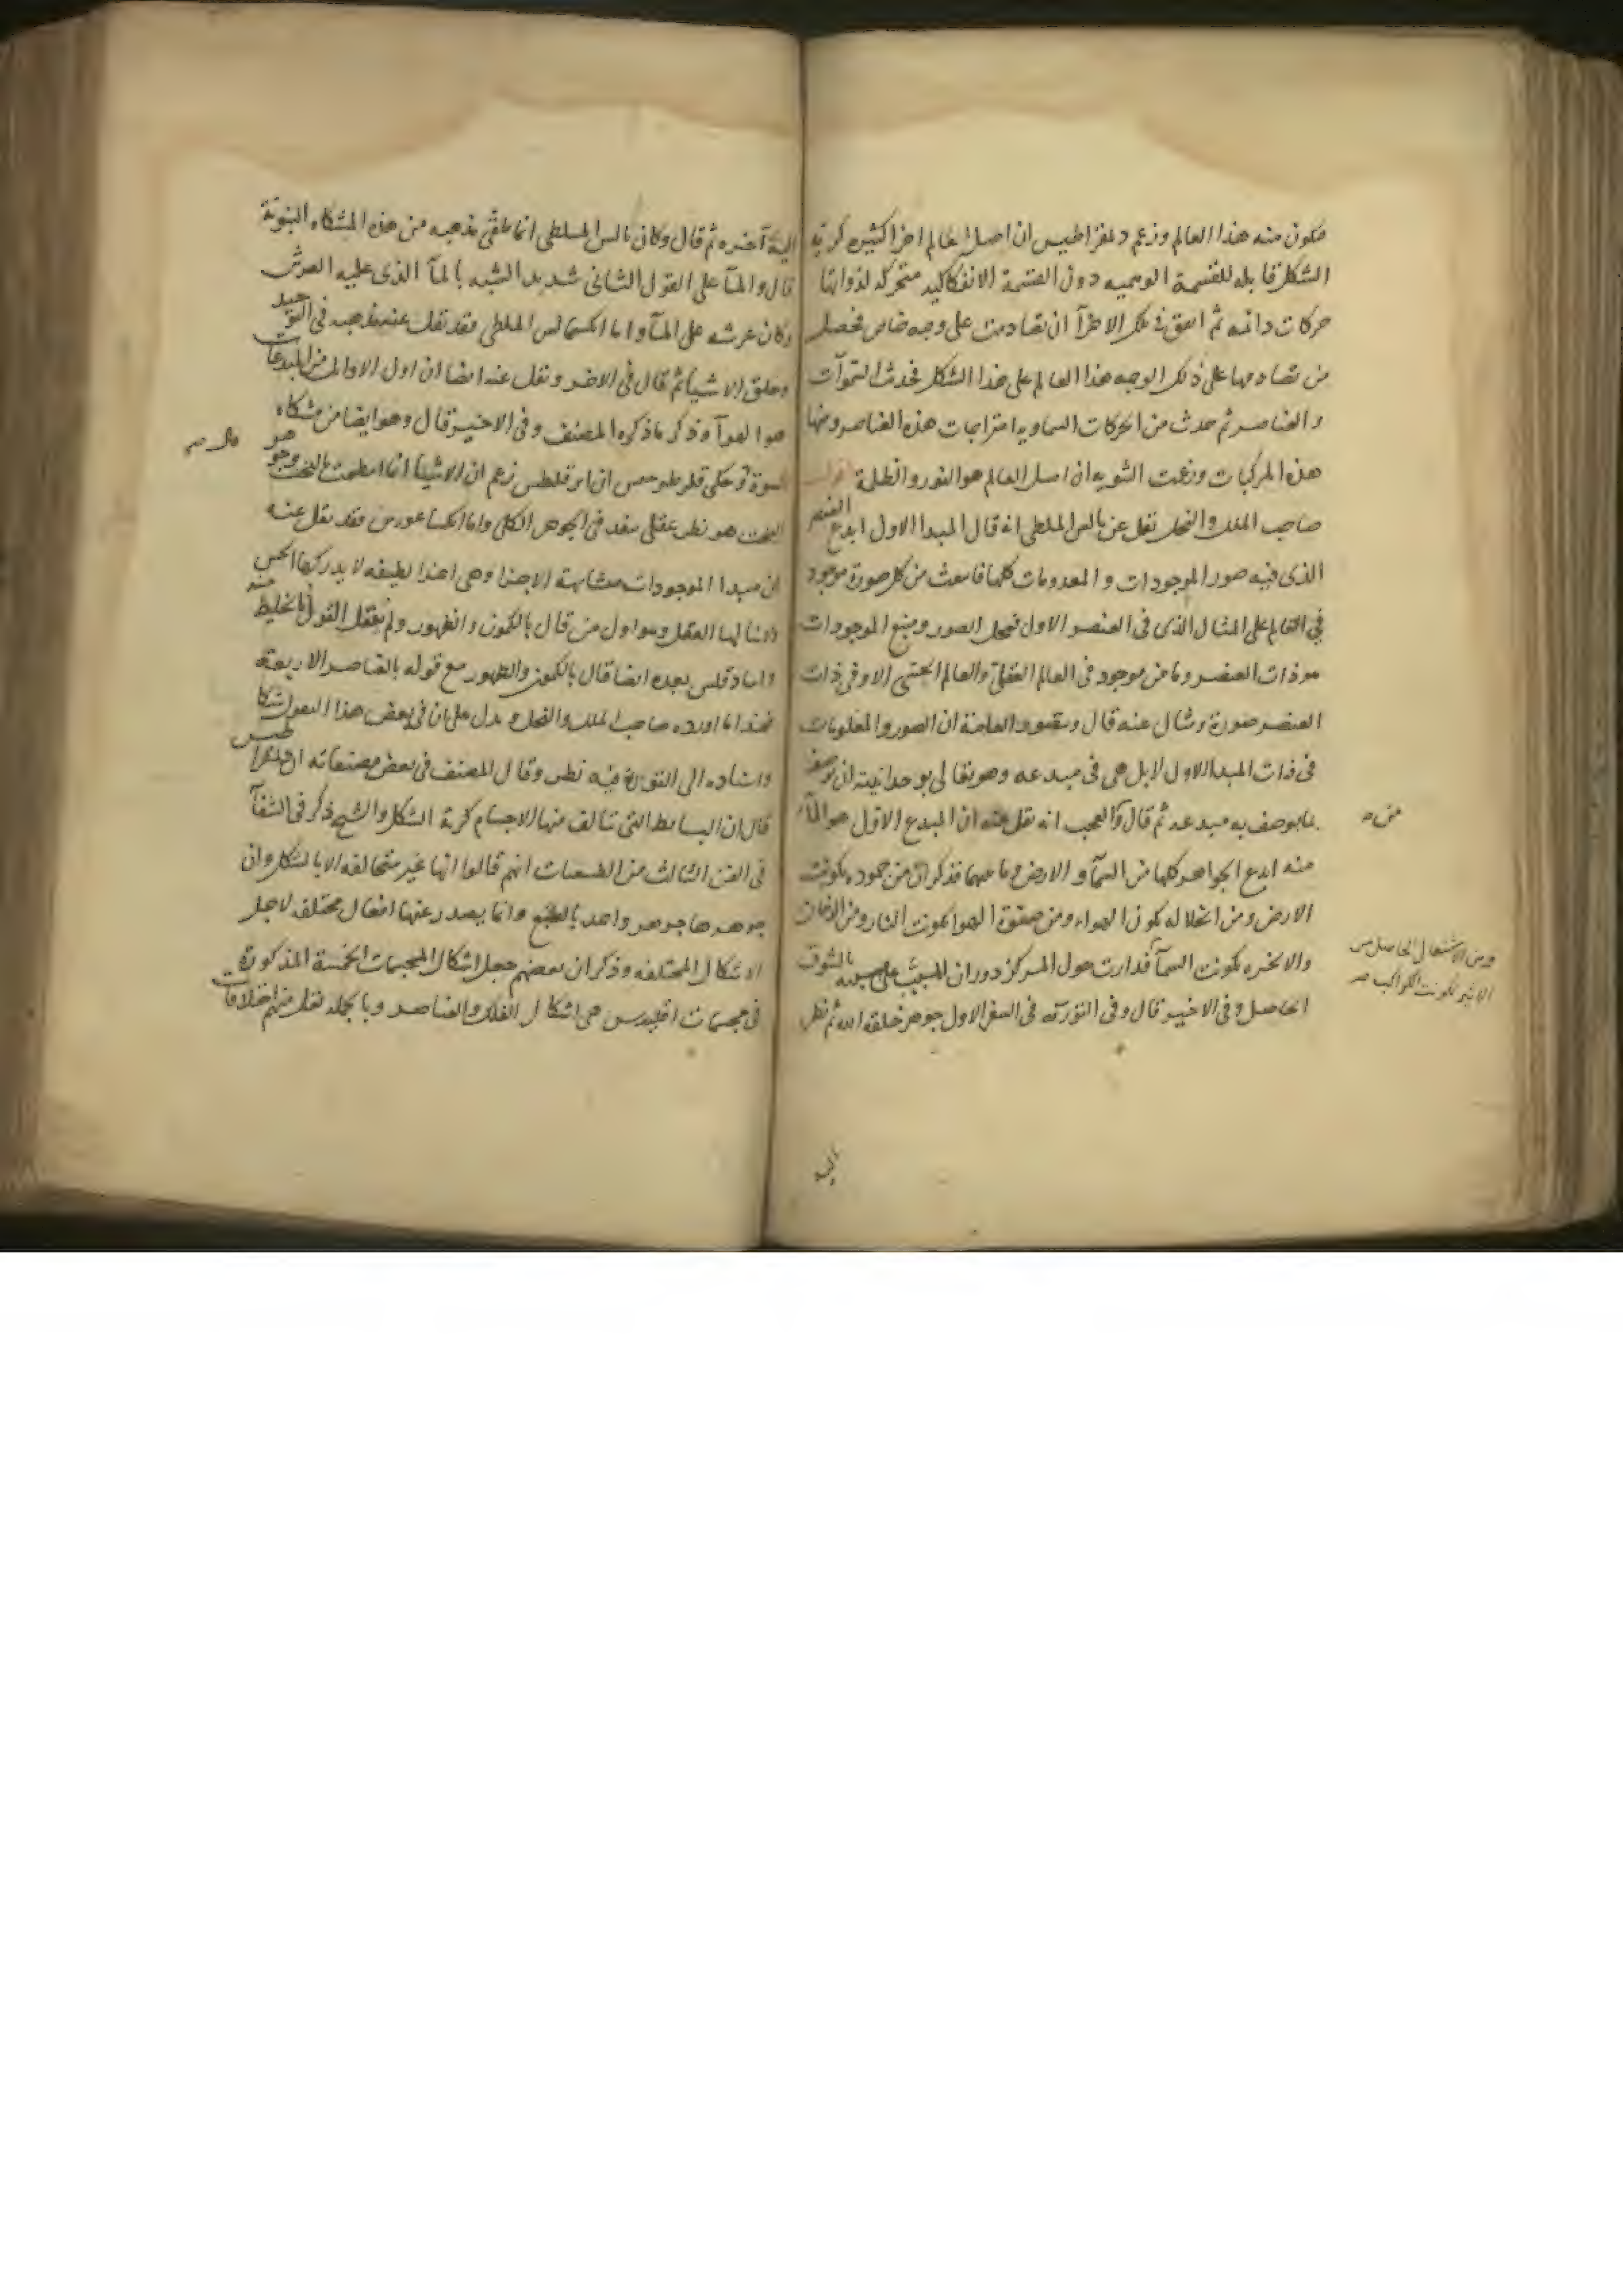 فتكون منه هذا العالم وزعم دمقراطيس ان اصل العالم اجزا كثيره كرية
الشكل قابله للقسمة الوهميه دون القسمة الانفكاكيه متحركه لذواتها
حركات دائمه ثم اتفق فى تلك الاجزآ ان تصادمت على وجه خاص فحصل
من تصادمها على ذلك الوجه هذا العالم على هذا الشكل فحدث السموآت
والعناصر ثم حدث من الحركات السماويه امتزاجات هذه العناصر ومنها
هذه المركبات وزعمت الثنويه ان اصل العالم هو النور والظلمة اقول
صاحب الملل والنحل نقل عن ثالس الملطى انه قال المبدا الاول ابدع العنصر
الذى فيه صور الموجودات والمعدومات كلها فانبعث من كل صورة موجود
فى العالم على المثال الذى فى العنصر الاول فمحل الصور ومنبع الموجودات
هو ذات العنصر وما من موجود فى العالم العقلى والعالم الحسى الا وفى ذات
العنصر صورة ومثال عنه قال ويتصور العامة ان الصور والمعلومات
فى ذات المبدا الاول لا بل هى فى مبدعه وهو تعالى بوحدانيته ان يوصف
بما يوصف به مبدعه ثم قال والعجب انه نقل عنه ان المبدع الاول هو المآء
منه ابدع الجواهر كلها من السمآ والارض وما بينهما فذكر ان من جموده تكونت
الارض ومن انحلاله تكون الهواء ومن صفوة الهوا تكونت النار ومن الدخان
والابخره تكونت السمآ فدارت حول المركز دوران المسبب على سببه بالشوق
الحاصل وفى الاخير قال وفى التورية فى السفر الاول جوهر خلقه الله ثم نظر
من ه
ومن الاشتعال الحاصل من
الاثير تكونت الكواكب صح
اليه
اليه آخره ثم قال وكان ثالس الملطى انما تلقى مذهبه من هذه المشكاه النبوية
قال والمآ على القول الثانى شديد الشبه بالمآ الذى عليه العرش
وكان عرشه على المآ واما انكسمالس الملطى فقد نقل عنه مذهبه فى التوحيد
وخلق الاشيآ ثم قال فى الاخر ونقل عنه ايضا ان اول الاوائل من المبدعات
هو الهوآ وذكر ما ذكره المصنف وفى الاخير قال وهو ايضا من مشكاه
النبوة وحكى فلوطرخس ان ابرقليطس زعم ان الاشيآ انما انتظمت بالبخت وجوهر
البخت هو نظر عقلى ينفذ فى الجوهر الكلى واما انكساغورس فقد نقل عنه
ان مبدا الموجودات متشابهة الاجزا وهى اجزا لطيفه لا يدركها الحس
وانما ينالها العقل وهو اول من قال بالكمون والظهور ولم ينقل القول بالخليط منه
وانبادقلس بعده ايضا قال بالكمون والظهور مع قوله بالعناصر الاربعة
فهذا ما اورده صاحب الملل والنحل ويدل على ان فى بعض هذا القول شكا
واسناده الى التورية فيه نظر وقال المصنف فى بعض مصنفاته ان ديمقراطيس
قال ان البسائط التى تتالف منها الاجسام كرية الشكل والشيخ ذكر فى الشفآ
فى الفن الثالث من الطبيعيات انهم قالوا انها غير متخالفه الا بالشكل وان
جوهرها جوهر واحد بالطبع وانما يصدر عنها افعال مختلفه لاجل
الاشكال المختلفه وذكر ان بعضهم جعل اشكال المجسمات الخمسة المذكورة
فى مجسمات اقليدس هى اشكال الفلك والعناصر وبالجمله نقل منهم اختلافات